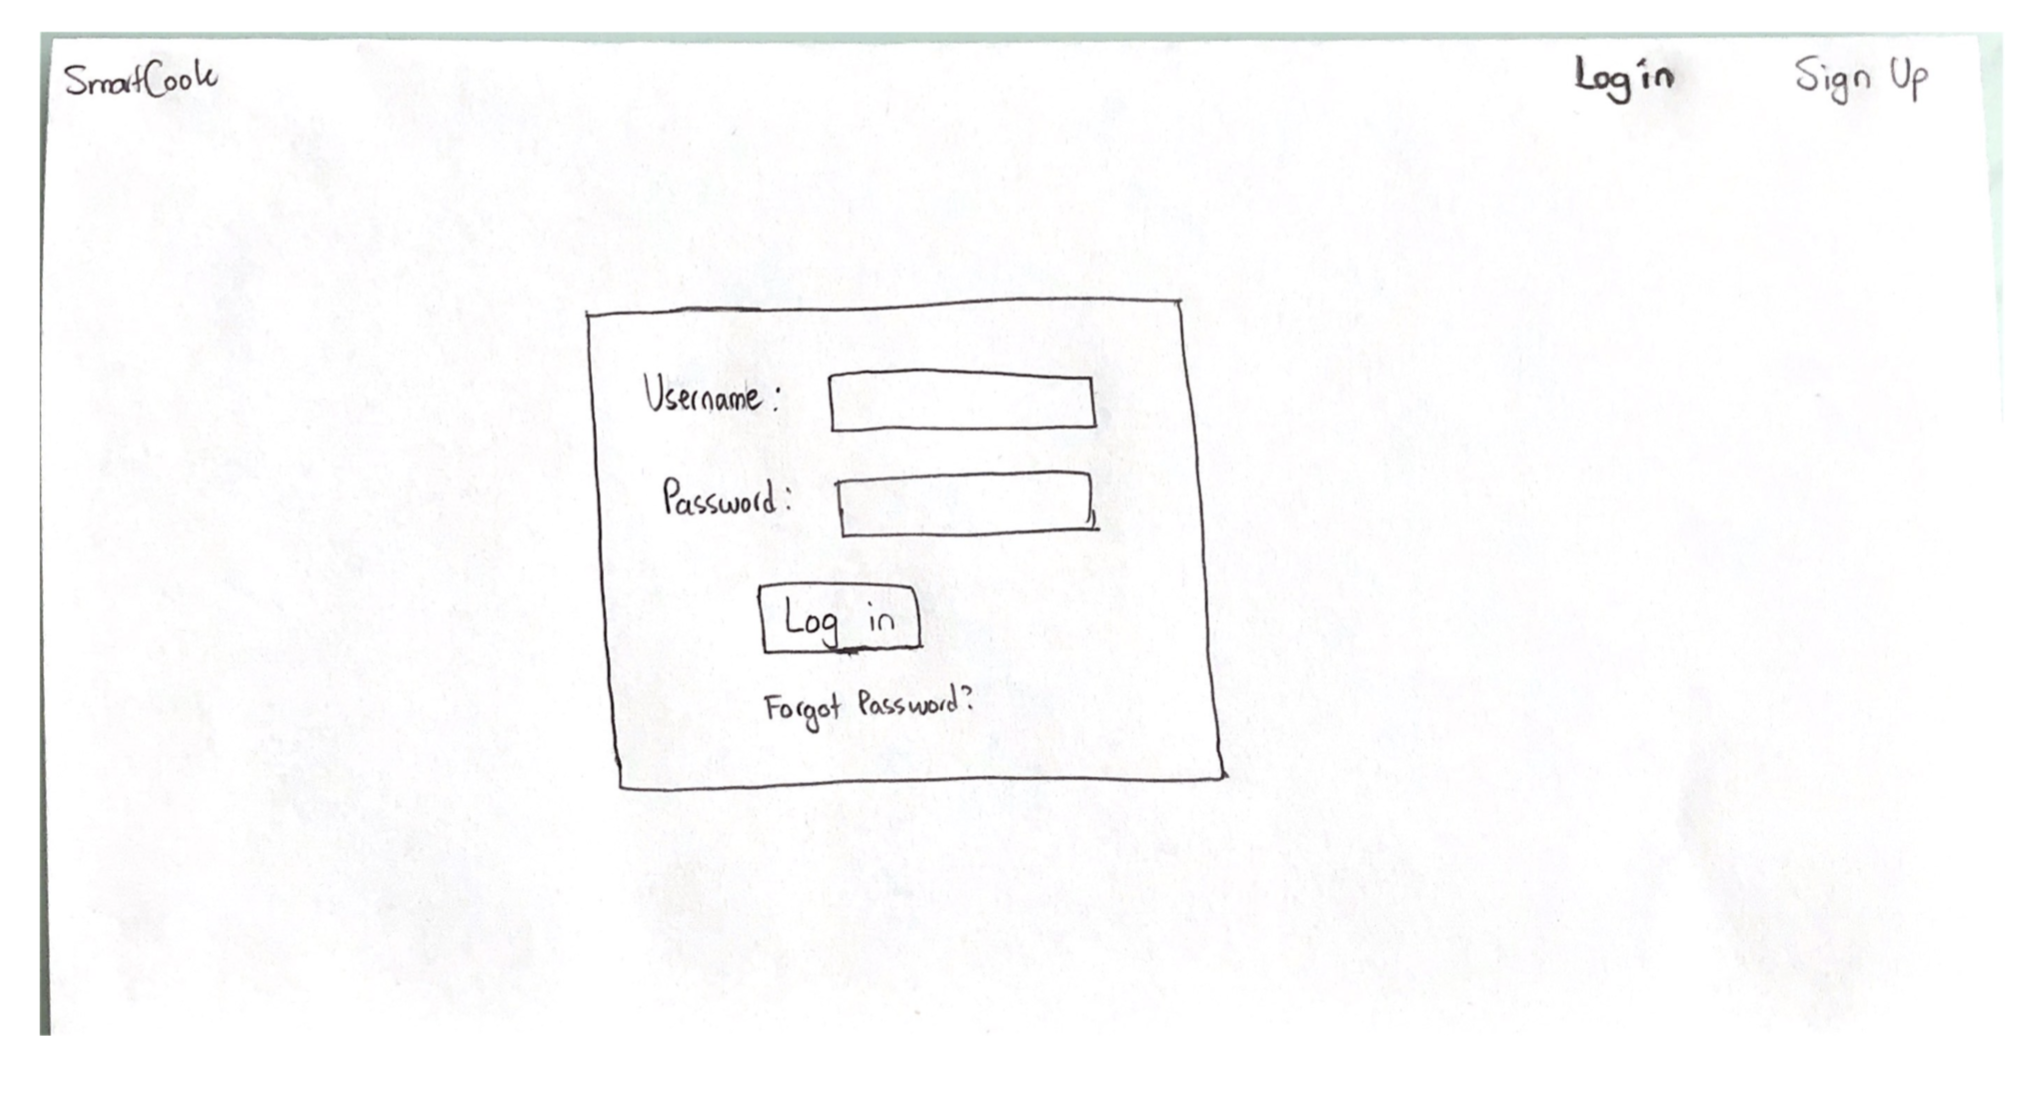 SmartCook
Login
Sign Up
Username:
Password:
Log in
Forgot Password?